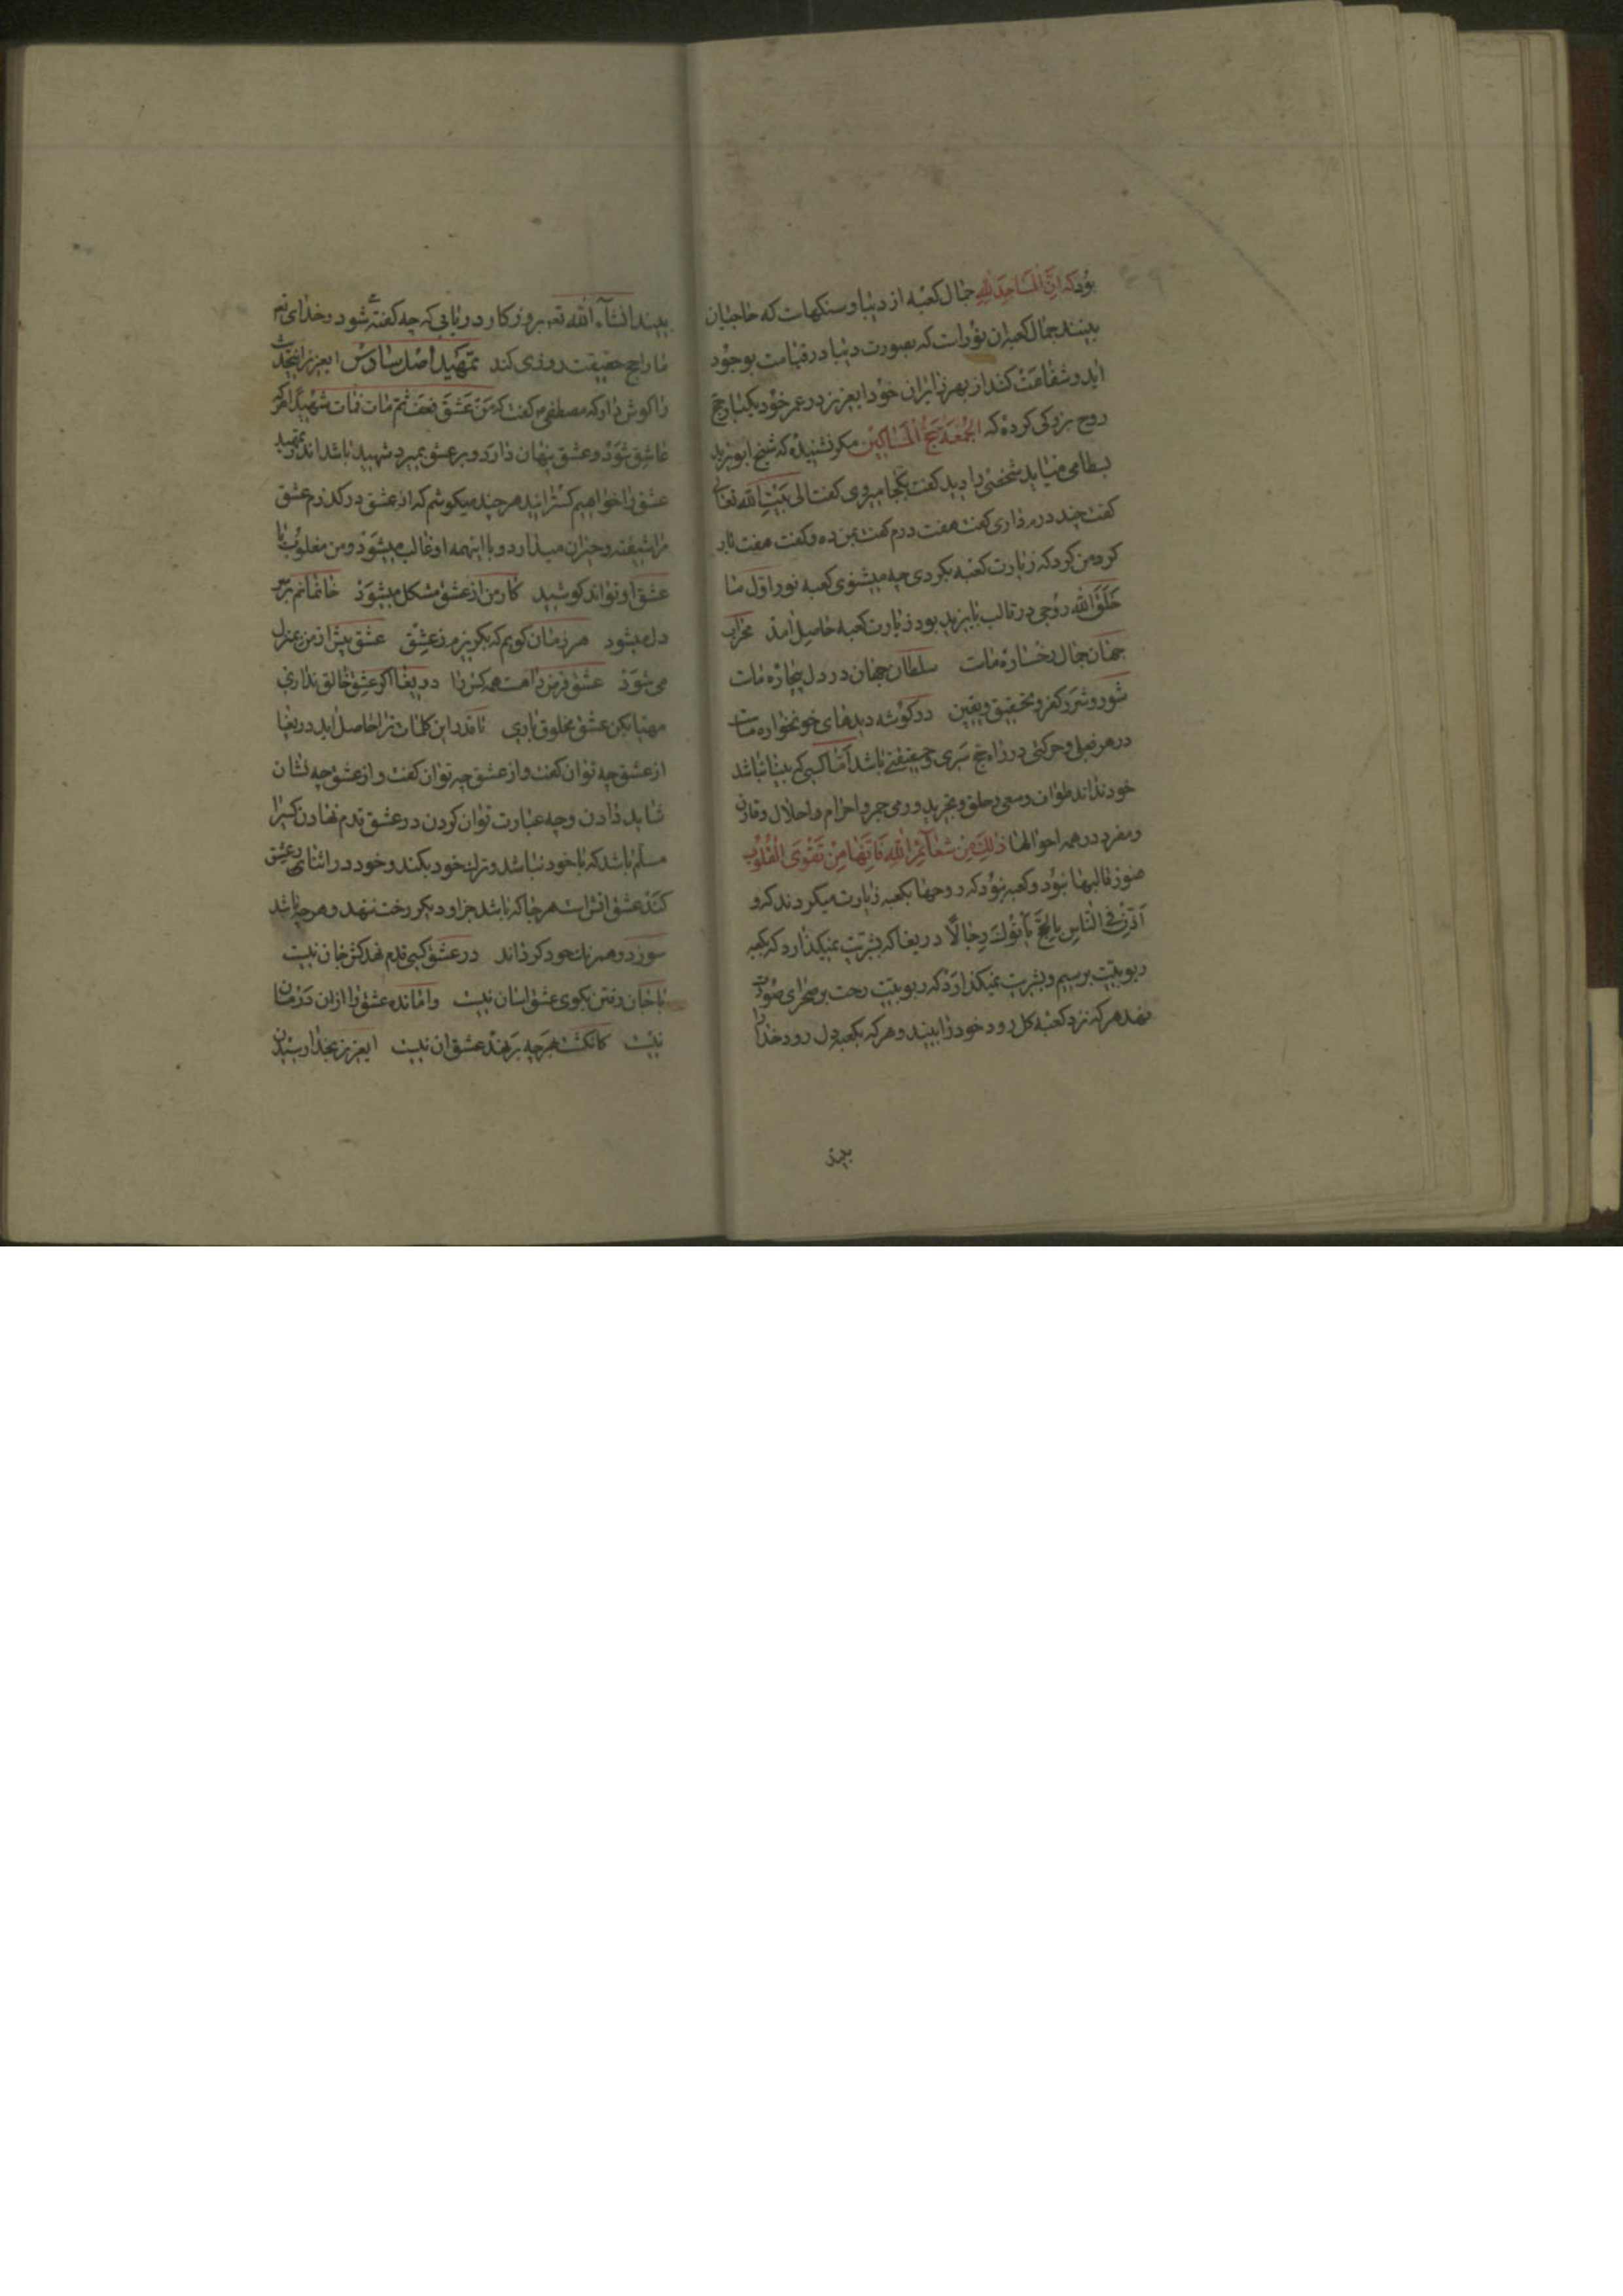 بود که ان المساجد لله جمال کعبه از دیبا و سنکهاست که حاجیان
بینند جمال کعبه ان نورات که بصورت دنیا در قیامت بوجود
اید و شفاعت کند از بهر زایران خود ایعزیز در عمر خود یکبار حج
روح بزرکی کرده که الجمعة حج المساکین مکر نشنیده که شیخ ابویزید
بسطامی میاید شخصی را دید کفت بکجا میروی کفت الی بیت الله تعالی
کفت چند درم داری کفت هفت درم کفت بمن ده و کفت هفت بار
کرد من کرد که زیارت کعبه بکردی چه میشنوی کعبه نور اول ما
خلق الله روحی در قالب بایزید بود زیارت کعبه حاصل آمد محراب
جهان جمال رخساره مات سلطان جهان در دل بیچاره مات
شور و شر و کفر و تحقیق و یقین در کوشه دیدهای خونخواره مات
در هر فعلی و حرکتی در راه حج سری و حقیقتی باشد اما کسی که بینا نباشد
خود نداند طواف و سعی و حلق و تجرید و رمی جمر و احرام و احلال و قارن
و مفرد در همه احوالها ذلک من شعائر الله فانها من تقوی القلوب
هنوز قالبها نبود و کعبه نبود که روحها بکعبه زیارت میکردند که و
اذن فی الناس بالحج یأتوک رجالا دریغا که بشریت نمیکذارد که بکعبه
ربوبیت برسیم و بشریت نمیکذارد که ربوبیت رخت بر صحرای صورت
نهد هر که نزد کعبه کل رود خود را بیند و هر که بکعبه دل رود خدا را
بیند
بیند انشآء الله تعـ بروزکار دریابی که چه کفته شود و خدای تعـ
ما را حج حقیقت روزی کند تمهید اصل سادس ایعزیز این حدیث
را کوش دار که مصطفی کفت که من عشق فعف ثم مات فمات شهیدا هر که
عاشق شود و عشق پنهان دارد و بر عشق بمیرد شهید باشد اندر تمهید
عشق را خواهیم کسترانید هر چند میکوشم که از عشق در کذرم عشق
مرا شیفته و حیران میدارد و با اینهمه او غالب میشود و من مغلوب با
عشق او تواند کوشید کار من از عشق مشکل میشود خانمانم بر سر
دل میشود هر زمان کویم که بکریزم ز عشق عشق پیش از من بمنزل
می شود عشق فرض راهست همه کس را دریغا اکر عشق خالق نداری
مهیا بکن عشق مخلوق باری تا قدر این کلمات ترا حاصل اید دریغا
از عشق چه توان کفت و از عشق چه توان کفت و از عشق چه نشان
شاید دادن و چه عبارت توان کردن در عشق قدم نهادن کسی را
مسلم باشد که با خود نباشد و ترک خود بکند و خود در اثنای عشق
کند عشق اتش است هر جا که باشد جز او دیکر رخت ننهد و هر جا باشد
سوزد و همرنک خود کرداند در عشق کسی قدم نهد کش جان نیست
با جان رفتن بکوی عشق اسان نیست وامانده عشق را از ان درمان
نیست کانکشت هر چه بر نهد عشق ان نیست ایعزیز بخدا رسیدن